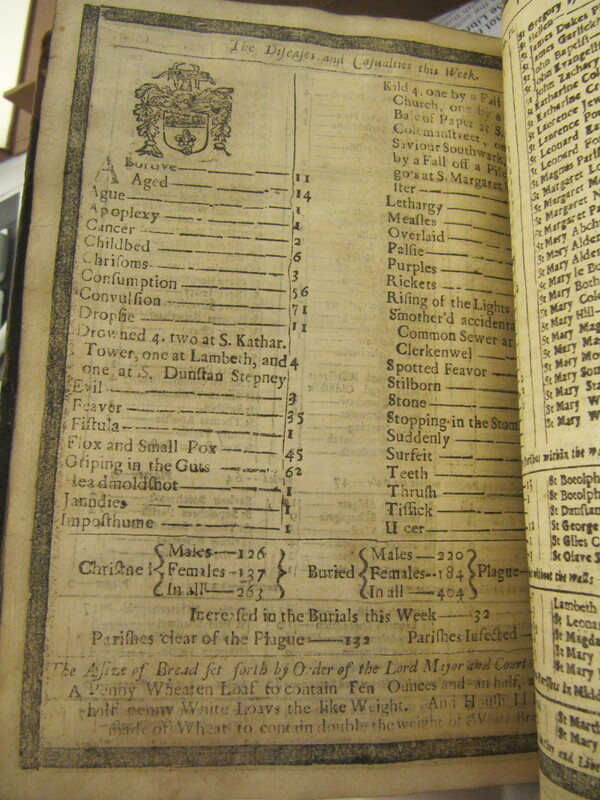 The Diseases and Casualties this Week.
Abortive
Aged 11
Ague 14
Apoplexy 1
Cancer 1
Childbed 2
Chrisoms 6
Consumption 3
Convulsion 56
Dropsie 71
11
Drowned 4. two at S. Kathar.
Tower, one at Lambeth, and 4
one at S. Dunstan Stepney
Evil 3
Feaver 35
Fistula 1
Flox and Small Pox 45
Griping in the Guts 62
Headmoldshot 1
Janndies 1
Imposthume 1
Kild 4. one by a Fall
Church, one by a
Bale of Paper at S.
Colemanstreet, on
Saviour Southwark
by a Fall off a Pile
go's at S. Margaret
ster
Lethargy
Measles
Overlaid
Palsie
Purples
Rickets
Rising of the Lights
Smother'd accidenta
Common Sewer at
Clerkenwel
Spotted Feavor
Stilborn
Stone
Stopping in the Stom
Suddenly
Surfeit
Teeth
Thrush
Tissick
Ulcer
Christned { Males—126
Females-137
In all—263 }
Buried { Males—220
Females--184
In all—404 } Plague
Increased in the Burials this Week—32
Parishes clear of the Plague—132 Parishes Infected—
The Assize of Bread set forth by Order of the Lord Mayor and Court
A Penny Wheaten Loaf to contain Ten Ounces and an half,
half penny White Loavs the like Weight. And Houshl
made of Wheat to contain double the weight of White Bre
St Gregory
St Hellen
St James Dukes Pl
St James Garlickh
St John Baptist
St John Evangelis
St John Zachary
St Katharine Col
St Katharine Cr
St Laurence Jew
St Laurence Pou
St Leonard Ea
St Leonard Fos
St Magnus Parish
St Margaret Lo
St Margaret M
St Margaret N
St Margaret Pa
St Mary Abch
St Mary Alder
St Mary Alder
St Mary le Bo
St Mary Both
St Mary Cole
St Mary Hill
St Mary Mag
St Mary Mo
St Mary So
St Mary Sta
St Mary W
St Mary W
within the W
St Botolph
St Botolph
St Dunstan
St George
St Giles C
St Olave S
without the Walls
Lambeth
St Leonar
St Magda
St Mary
St Mary
in Midd
St Marti
St Mary